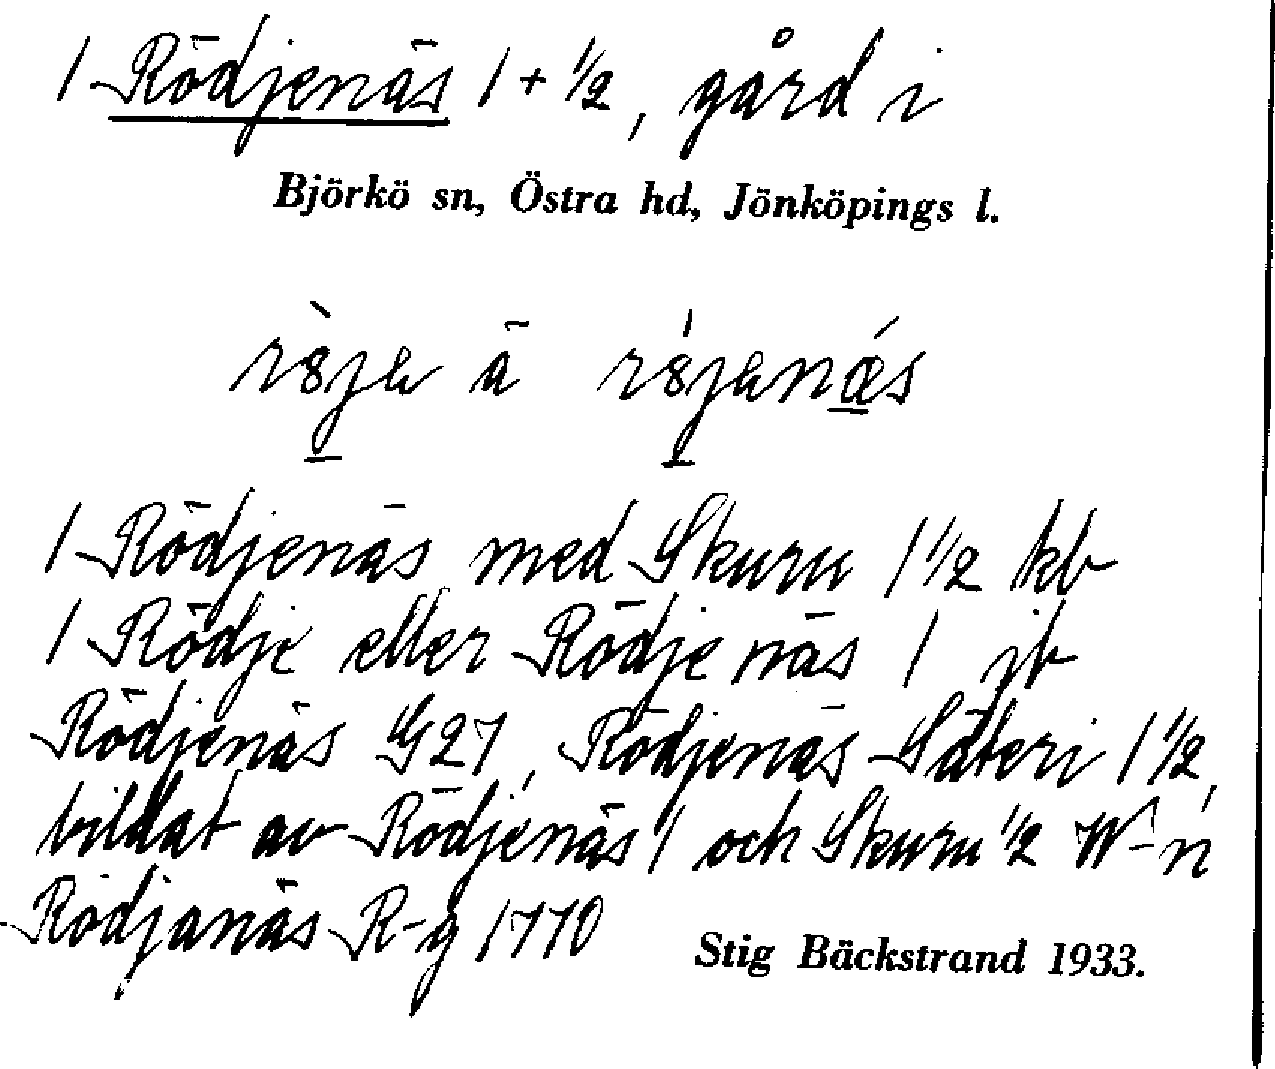 1 Rödjenäs 1 + 1/2, gård i
Björkö sn, Östra hd, Jönköpings l.
röja ä röjanäs
1 Rödjenäs med Skuru 1 1/2 kb
1 Rödje eller Rödje näs 1 jb
Rödjenäs G27, Rödjenäs Säteri 1 1/2,
bildat av Rödjenäs 1 och Skuru 1/2 W-n
Rödjanäs R-g 1770
Stig Bäckstrand 1933.